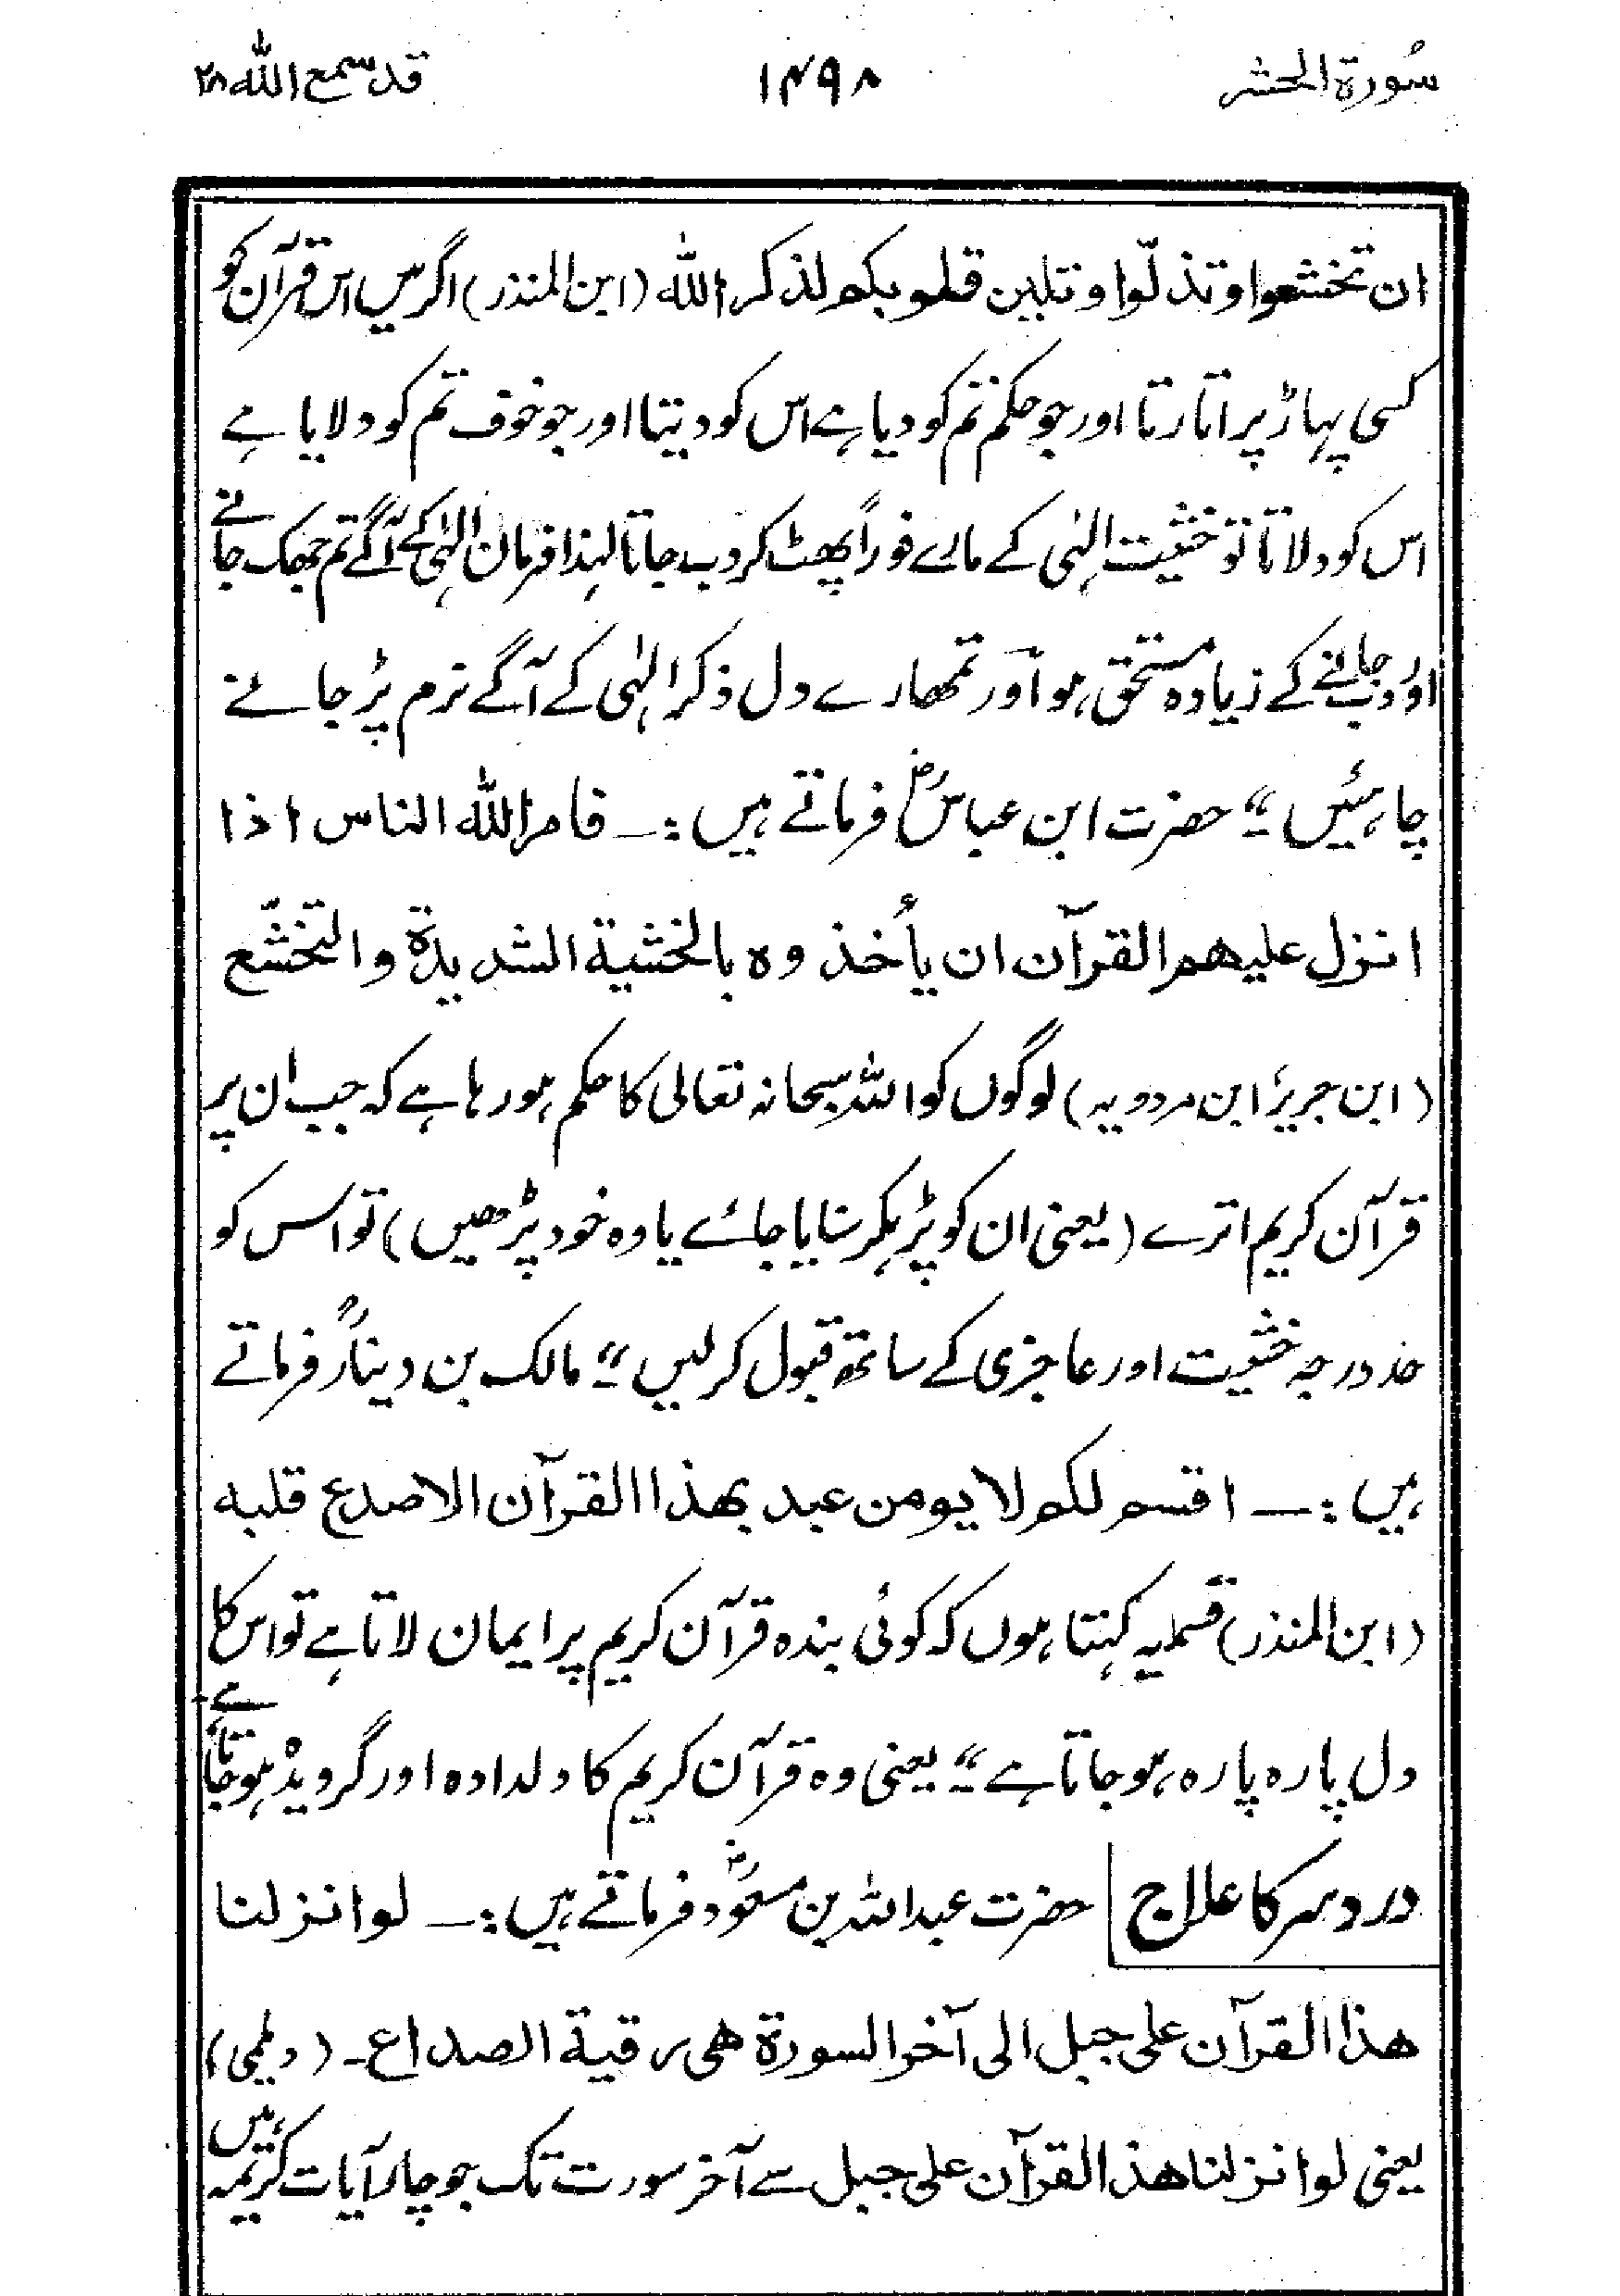 سُورۃ الحشر ۱۴۹۸ قد سمع اللہ ۲۸
ان تخشعوا و تذلّوا و تلین قلوبکم لذکر اللہ (ابن المنذر) اگر میں اس قرآن کو
کسی پہاڑ پر اتارتا اور جو حکم تم کو دیا ہے اس کو دیتا اور جو خوف تم کو دلایا ہے
اس کو دلاتا تو خشیت الہٰی کے مارے فوراً پھٹ کر دب جاتا لہذا فرمان الہٰی کے آگے تم جھک جانے
اور دب جانے کے زیادہ مستحق ہو اور تمھارے دل ذکر الہٰی کے آگے نرم پڑ جانے
چاہئیں ،،۔ حضرت ابن عباسؓ فرماتے ہیں :ـ فامر اللہ الناس اذا
انزل علیھم القرآن ان یأخذ وہ بالخشیة الشدیدة و التخشّع
(ابن جریر، ابن مردویہ) لوگوں کو اللہ سبحانہ تعالی کا حکم ہو رہا ہے کہ جب ان پر
قرآن کریم اترے (یعنی ان کو پڑہکر سنایا جائے یا وہ خود پڑھیں) تو اس کو
حد درجہ خشیت اور عاجزی کے ساتھ قبول کرلیں ،،۔ مالک بن دینارؒ فرماتے
ہیں :ـ اقسم لکم لا یومن عبد بھذا القرآن الا صدع قلبہ
(ابن المنذر) قسمیہ کہتا ہوں کہ کوئی بندہ قرآن کریم پر ایمان لاتا ہے تو اس کا
دل پارہ پارہ ہوجاتا ہے ،،۔ یعنی وہ قرآن کریم کا دلدادہ اور گرویدہ ہوجاتا ہے۔
درد سر کا علاج حضرت عبداللہ بن مسعودؓ فرماتے ہیں :ـ لو انزلنا
ھذا القرآن علی جبل الی آخر السورة ھی رقیة الصداع۔ (دیلمی)
یعنی لو انزلنا ھذا القرآن علی جبل سے آخر سورت تک جو چار آیات کریمہ ہیں